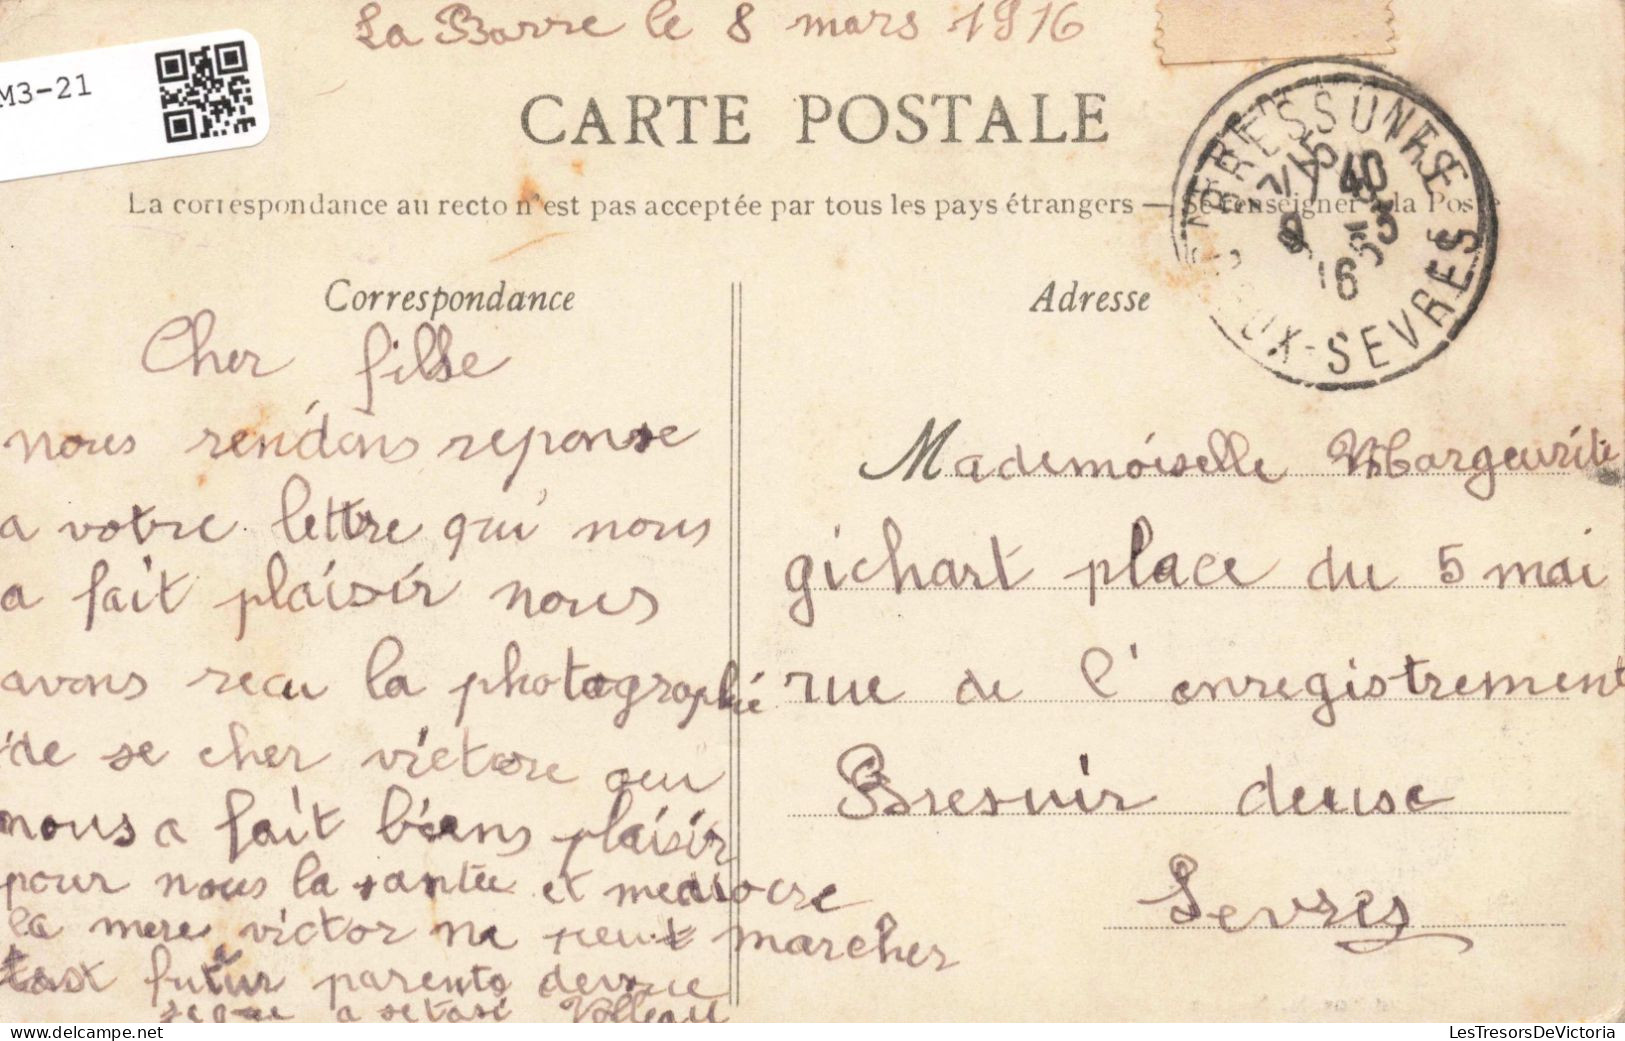 La Barre le 8 mars 1916
M3-21
CARTE POSTALE
La correspondance au recto n'est pas acceptée par tous les pays étrangers — Se renseigner à la Poste
BRESSUIRE
DEUX-SEVRES
Correspondance
Adresse
Cher fille
nous rendons reponse
a votre lettre qui nous
a fait plaisir nous
avons recu la photographie
de se cher victore
nous a fait biens plaisir
pour nous la santee et mediocre
la mere victor ne peut marcher
futur parents
Mademoiselle Margeurite
gichart place du 5 mai
rue de l'enregistrement
Bresuir deuse
Sevres
LesTresorsDeVictoria
https://www.delcampe.net